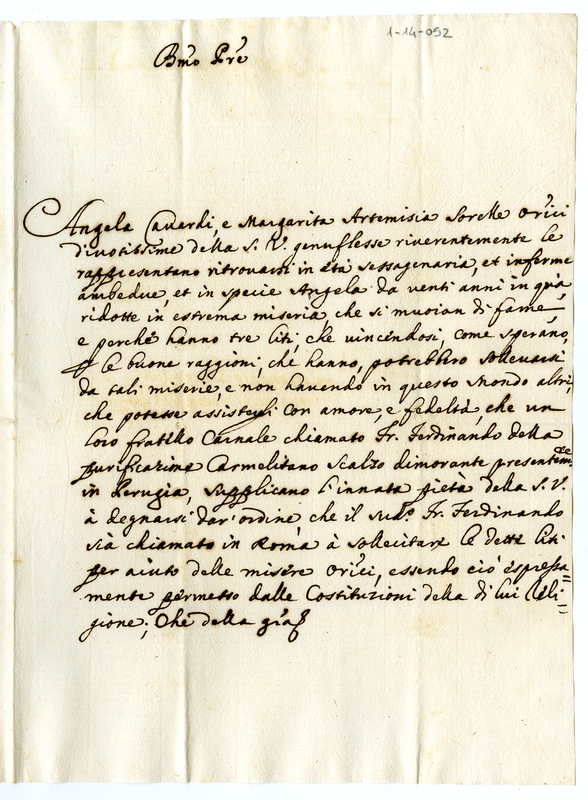 1-14-052
Bmo Pre
Angela Cavardi, e Margarita Artemisia Sorelle Orici
divotissime della S. V. genuflesse riverentemente le
rappresentano ritrovarsi in età sessagenaria, et inferme
ambedue, et in specie Angela da venti anni in quà
ridotte in estrema miseria che si muoian di fame,
e perche hanno tre liti, che vincendosi, come sperano,
le buone raggioni, che hanno, potrebbero sollevarsi
da tali miserie, e non havendo in questo mondo altri,
che potesse assistergli con amore, e fedeltà, che un
loro fratello Carnale chiamato Fr. Ferdinando della
purificazione Carmelitano Scalzo dimorante presentemte
in Perugia, supplicano l'innata pietà della S. V.
à degnarsi dar'ordine, che il sudo. Fr. Ferdinando
sià chiamato in Roma à sollecitare le dette liti
per aiuto delle misere Orici, essendo ciò espressa=
mente permesso dalle Costituzioni della di lui Reli=
gione; Che della gra